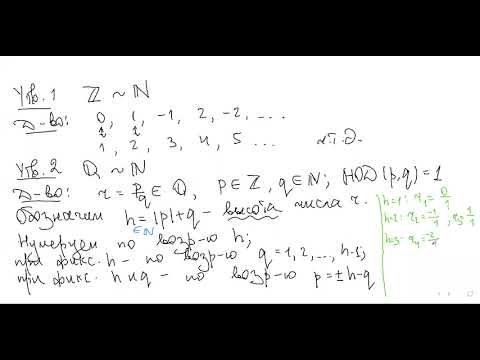 Утв. 1 ℤ ~ ℕ
Д-во: 0, 1, -1, 2, -2, ...
↕ ↕
1, 2, 3, 4, 5 ... ч.т.д.
Утв. 2 ℚ ~ ℕ
Д-во: r = p/q ∈ ℚ, p ∈ ℤ, q ∈ ℕ; НОД(p,q) = 1
Обозначим h = |p| + q - высота числа r.
∈ ℕ
Нумеруем по возр-ю h;
при фикс. h - по возр-ю q = 1, 2, ..., h-1;
при фикс. h и q - по возр-ю p = ± h-q
h=1: r₁ = 0/1
h=2: r₂ = -1/1, r₃ = 1/1
h=3 - r₄ = -2/1